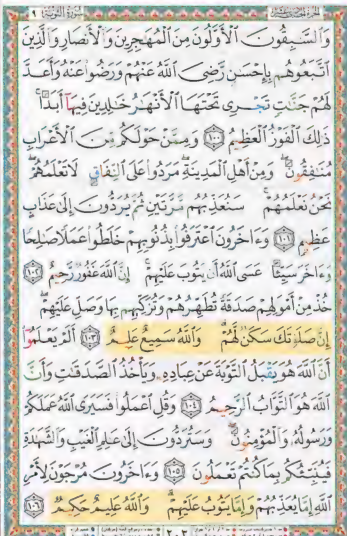 وَٱلسَّٰبِقُونَ ٱلْأَوَّلُونَ مِنَ ٱلْمُهَٰجِرِينَ وَٱلْأَنصَارِ وَٱلَّذِينَ
ٱتَّبَعُوهُم بِإِحْسَٰنٍ رَّضِىَ ٱللَّهُ عَنْهُمْ وَرَضُوا۟ عَنْهُ وَأَعَدَّ
لَهُمْ جَنَّٰتٍ تَجْرِى تَحْتَهَا ٱلْأَنْهَٰرُ خَٰلِدِينَ فِيهَآ أَبَدًا ۚ
ذَٰلِكَ ٱلْفَوْزُ ٱلْعَظِيمُ ١٠٠ وَمِمَّنْ حَوْلَكُم مِّنَ ٱلْأَعْرَابِ
مُنَٰفِقُونَ ۖ وَمِنْ أَهْلِ ٱلْمَدِينَةِ ۖ مَرَدُوا۟ عَلَى ٱلنِّفَاقِ لَا تَعْلَمُهُمْ ۖ
نَحْنُ نَعْلَمُهُمْ ۚ سَنُعَذِّبُهُم مَّرَّتَيْنِ ثُمَّ يُرَدُّونَ إِلَىٰ عَذَابٍ
عَظِيمٍ ١٠١ وَءَاخَرُونَ ٱعْتَرَفُوا۟ بِذُنُوبِهِمْ خَلَطُوا۟ عَمَلًا صَٰلِحًا
وَءَاخَرَ سَيِّئًا عَسَى ٱللَّهُ أَن يَتُوبَ عَلَيْهِمْ ۚ إِنَّ ٱللَّهَ غَفُورٌ رَّحِيمٌ ١٠٢
خُذْ مِنْ أَمْوَٰلِهِمْ صَدَقَةً تُطَهِّرُهُمْ وَتُزَكِّيهِم بِهَا وَصَلِّ عَلَيْهِمْ ۖ
إِنَّ صَلَوٰتَكَ سَكَنٌ لَّهُمْ ۗ وَٱللَّهُ سَمِيعٌ عَلِيمٌ ١٠٣ أَلَمْ يَعْلَمُوٓا۟
أَنَّ ٱللَّهَ هُوَ يَقْبَلُ ٱلتَّوْبَةَ عَنْ عِبَادِهِۦ وَيَأْخُذُ ٱلصَّدَقَٰتِ وَأَنَّ
ٱللَّهَ هُوَ ٱلتَّوَّابُ ٱلرَّحِيمُ ١٠٤ وَقُلِ ٱعْمَلُوا۟ فَسَيَرَى ٱللَّهُ عَمَلَكُمْ
وَرَسُولُهُۥ وَٱلْمُؤْمِنُونَ ۖ وَسَتُرَدُّونَ إِلَىٰ عَٰلِمِ ٱلْغَيْبِ وَٱلشَّهَٰدَةِ
فَيُنَبِّئُكُم بِمَا كُنتُمْ تَعْمَلُونَ ١٠٥ وَءَاخَرُونَ مُرْجَوْنَ لِأَمْرِ
ٱللَّهِ إِمَّا يُعَذِّبُهُمْ وَإِمَّا يَتُوبُ عَلَيْهِمْ ۗ وَٱللَّهُ عَلِيمٌ حَكِيمٌ ١٠٦
٢٠٣